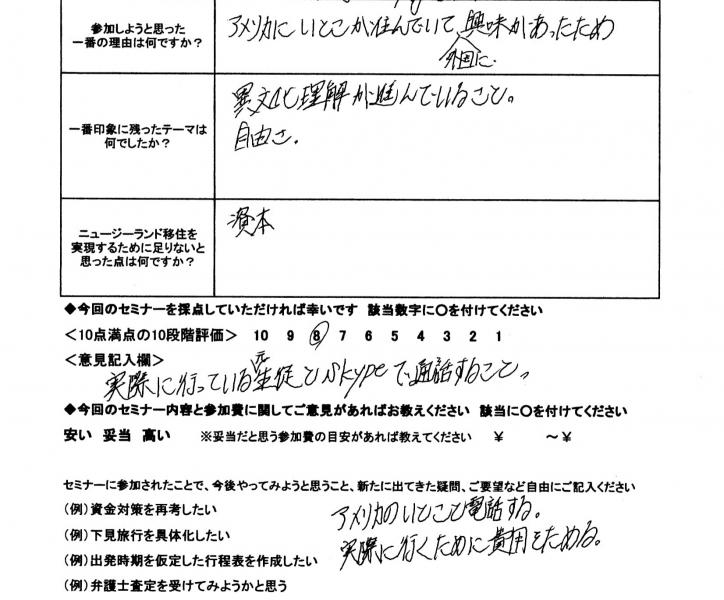 参加しようと思った
一番の理由は何ですか？
アメリカにいとこが住んでいて、興味があったため
外国に
一番印象に残ったテーマは
何でしたか？
異文化理解が進んでいること。
自由さ。
ニュージーランド移住を
実現するために足りないと
思った点は何ですか？
資本
◆今回のセミナーを採点していただければ幸いです 該当数字に○を付けてください
＜10点満点の10段階評価＞ 10 9 8 7 6 5 4 3 2 1
＜意見記入欄＞
元
実際に行っている生徒とskypeで通話すること。
◆今回のセミナー内容と参加費に関してご意見があればお教えください 該当に○を付けてください
安い 妥当 高い ※妥当だと思う参加費の目安があれば教えてください ￥ ～￥
セミナーに参加されたことで、今後やってみようと思うこと、新たに出てきた疑問、ご要望など自由にご記入ください
（例）資金対策を再考したい
アメリカのいとこと電話する。
（例）下見旅行を具体化したい
実際に行くために費用をためる。
（例）出発時期を仮定した行程表を作成したい
（例）弁護士査定を受けてみようかと思う